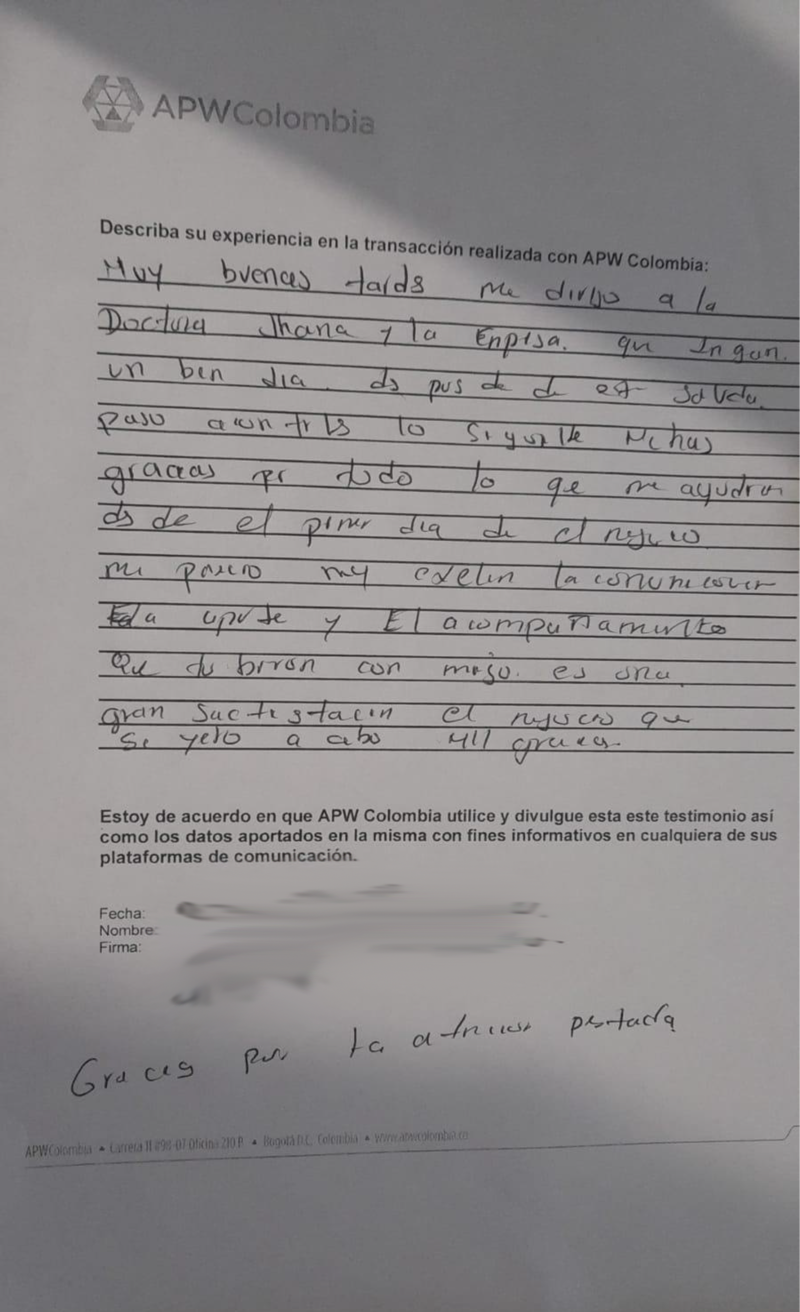 APWColombia
Describa su experiencia en la transacción realizada con APW Colombia:
Muy buenas tards me dirijo a la
Doctora Jhana y la Enprsa. que Tngan.
un ben dia. ds pus de de est Saludo.
paso a contrls lo Siguiente Mchas
gracias pr todo lo que me ayudron
ds de el primr dia de el
mi parcio my exelin la
y El acompañamiento
Que ds bieron con migo. es una
gran el que
Se yebo a cabo Mil gracias
Estoy de acuerdo en que APW Colombia utilice y divulgue esta este testimonio así
como los datos aportados en la misma con fines informativos en cualquiera de sus
plataformas de comunicación.
Fecha:
Nombre:
Firma:
Gracias por la prstada
APWColombia ▲ Carrera 11 #98-07 Oficina 210 P. ▲ Bogotá D.C, Colombia ▲ www.apwcolombia.co